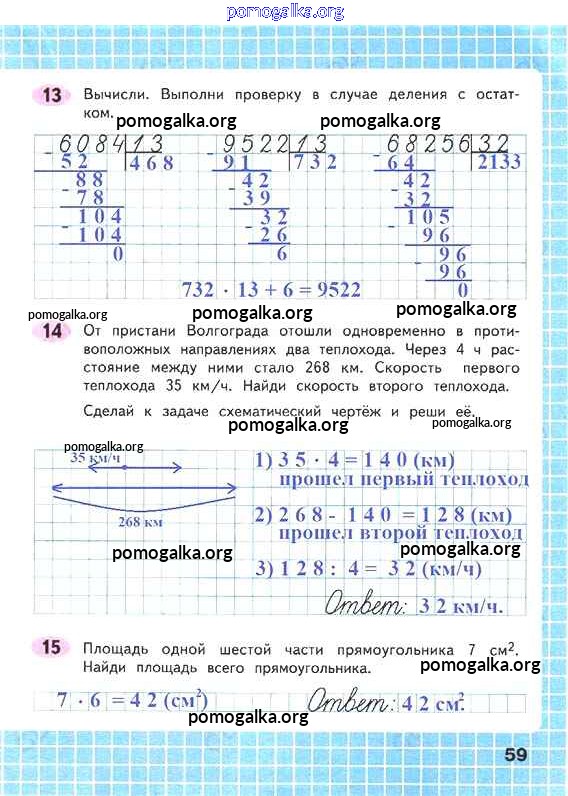 pomogalka.org
13 Вычисли. Выполни проверку в случае деления с остат-
ком.
pomogalka.org pomogalka.org pomogalka.org
6084 13 9522 13 68256 32
- 52 468 - 91 732 - 64 2133
88 42 42
- 78 - 39 - 32
104 32 105
- 104 - 26 - 96
0 6 96
- 96
732 · 13 + 6 = 9522 0
pomogalka.org pomogalka.org pomogalka.org
14 От пристани Волгограда отошли одновременно в проти-
воположных направлениях два теплохода. Через 4 ч рас-
стояние между ними стало 268 км. Скорость первого
теплохода 35 км/ч. Найди скорость второго теплохода.
Сделай к задаче схематический чертёж и реши её.
pomogalka.org pomogalka.org
pomogalka.org
35 км/ч
268 км
1) 35 · 4 = 140 (км)
прошел первый теплоход
2) 268 - 140 = 128 (км)
прошел второй теплоход
pomogalka.org pomogalka.org
3) 128 : 4 = 32 (км/ч)
Ответ: 32 км/ч.
15 Площадь одной шестой части прямоугольника 7 см².
Найди площадь всего прямоугольника.
pomogalka.org
7 · 6 = 42 (см²) Ответ: 42 см².
pomogalka.org
59